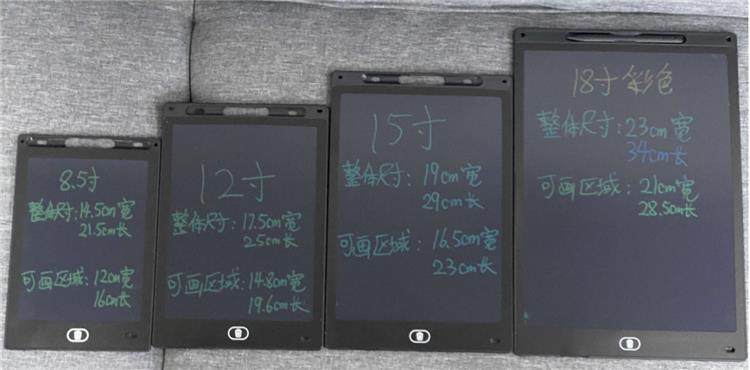 8.5寸
整体尺寸:14.5cm宽
21.5cm长
可画区域:12cm宽
16cm长
12寸
整体尺寸:17.5cm宽
25cm长
可画区域:14.8cm宽
19.6cm长
15寸
整体尺寸:19cm宽
29cm长
可画区域:16.5cm宽
23cm长
18寸彩色
整体尺寸:23cm宽
34cm长
可画区域:21cm宽
28.5cm长